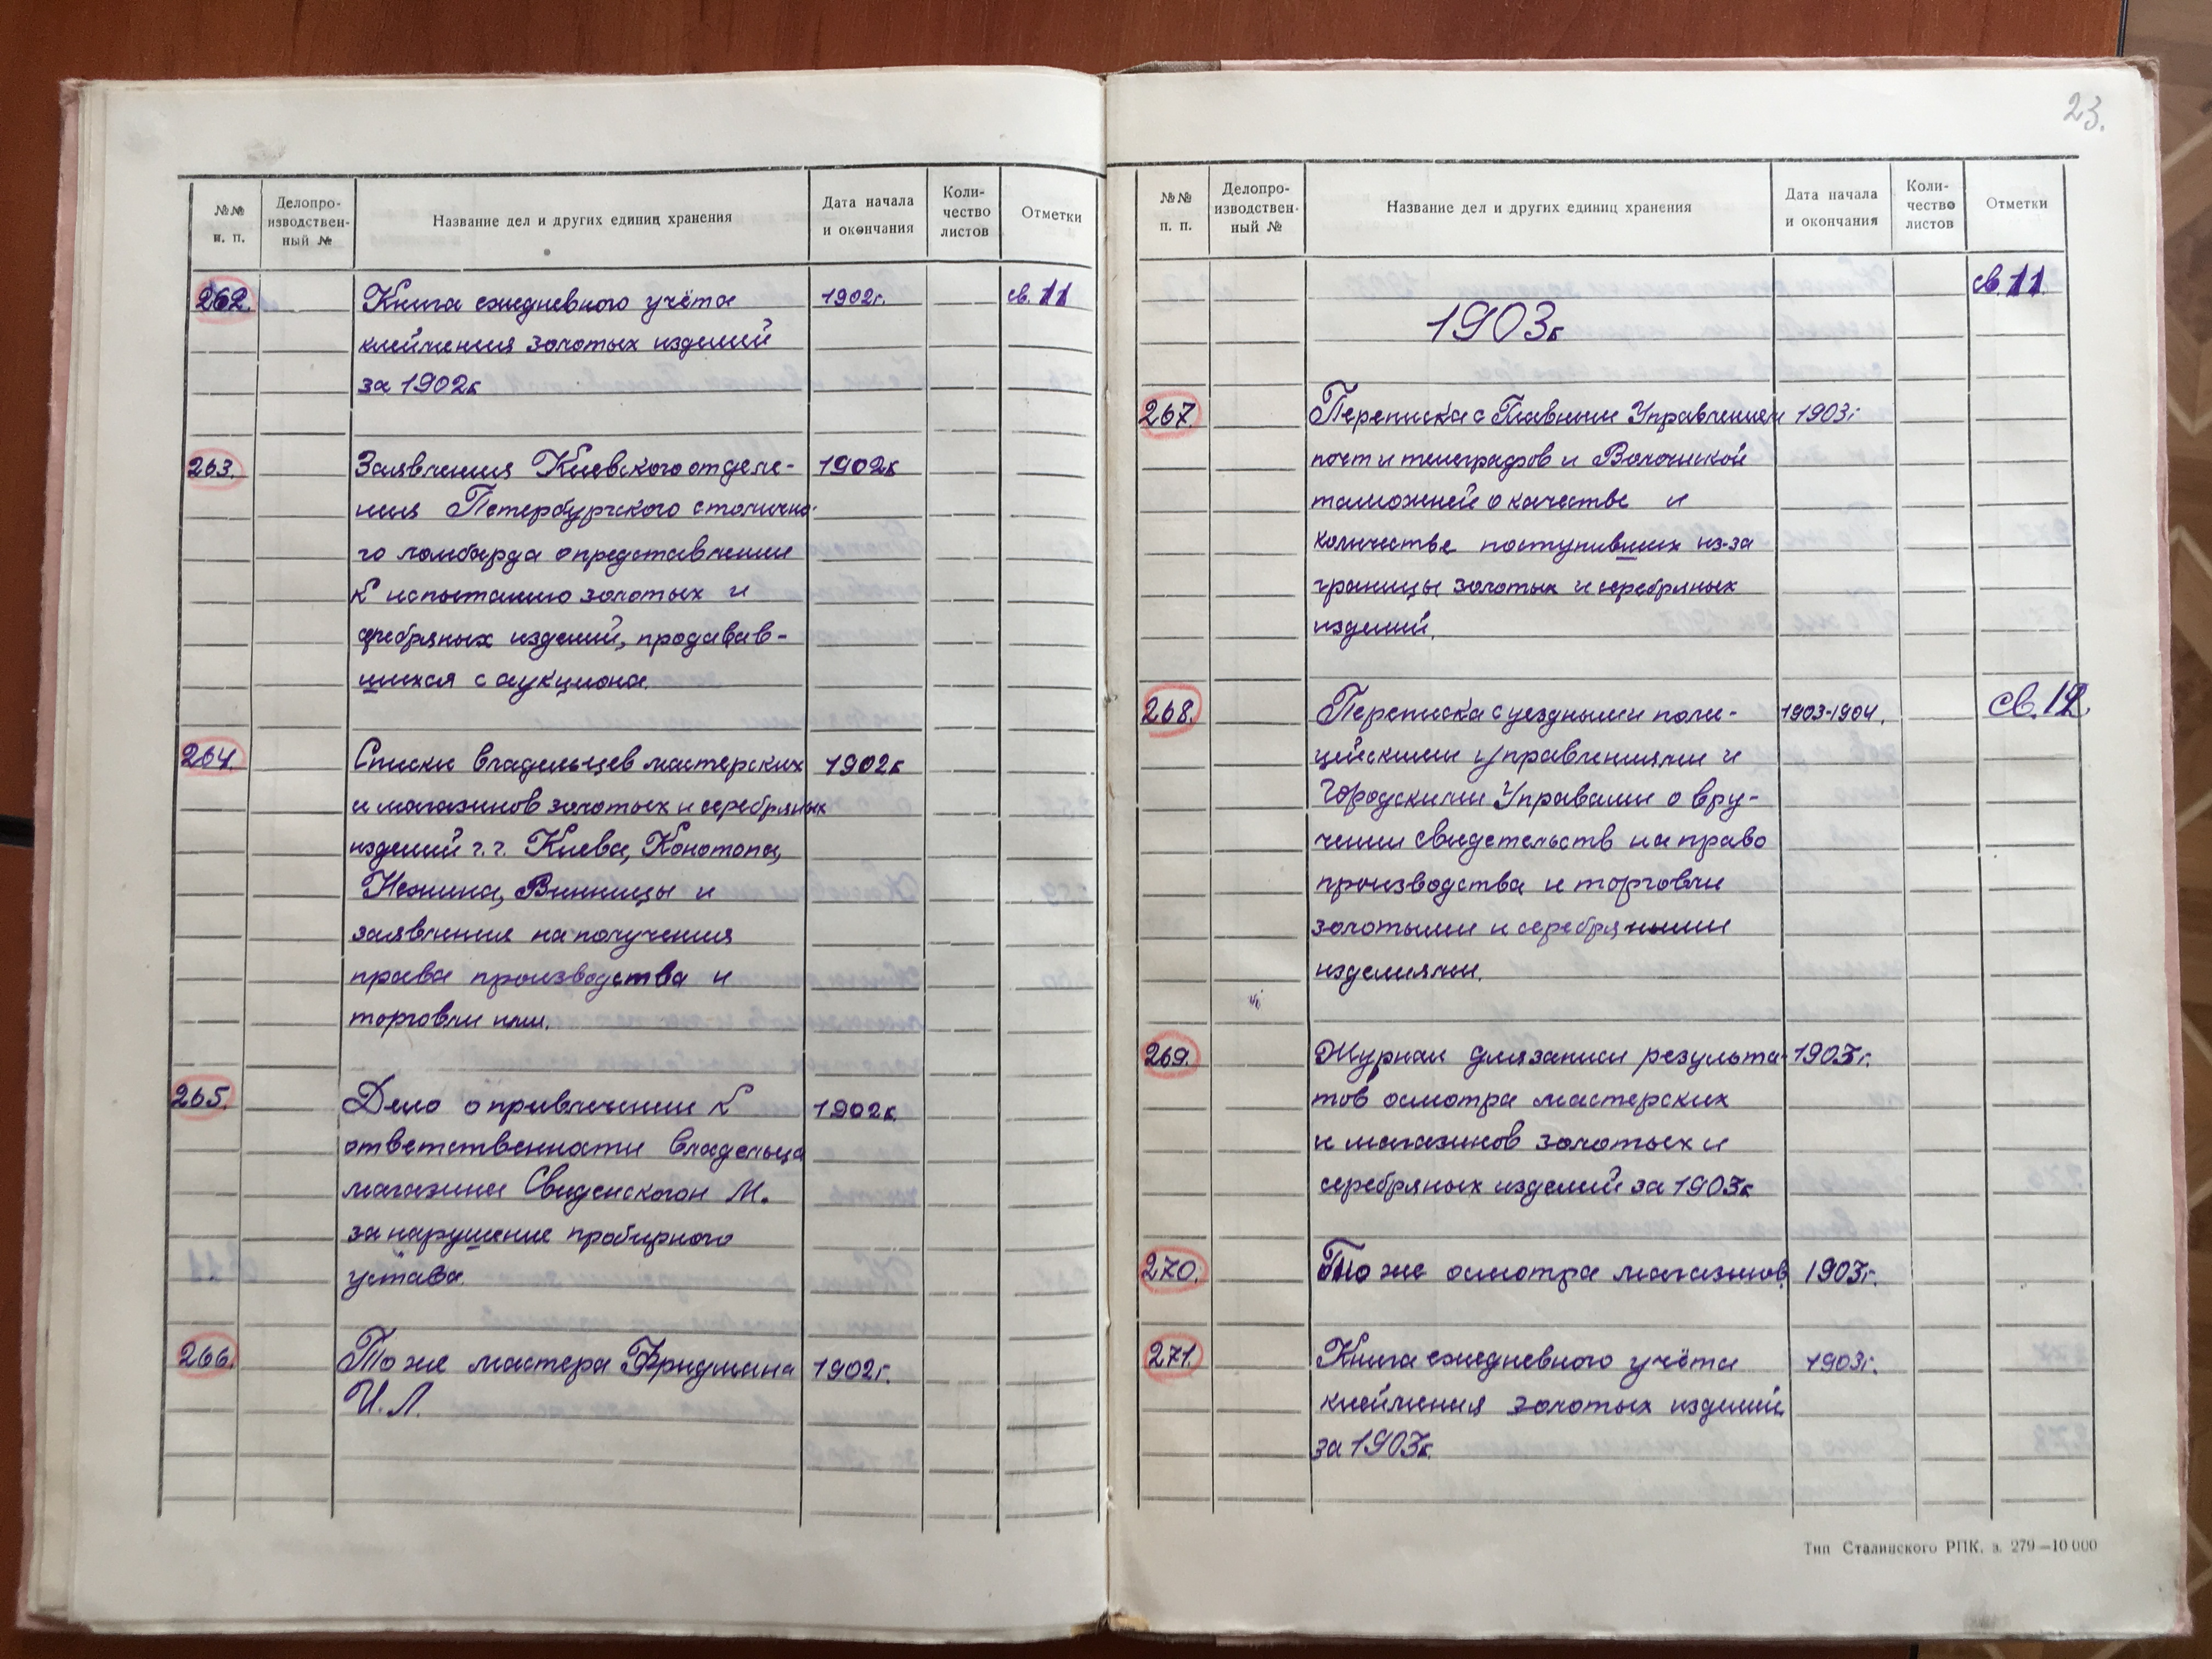 №№ п. п.
Делопро-
изводствен-
ный №
Название дел и других единиц хранения
Дата начала
и окончания
Коли-
чество
листов
Отметки
262. Книга ежедневного учёта 1902г. св. 11
клеймения золотых изделий
за 1902г
263. Заявления Киевского отделе- 1902г
ния Петербургского столично-
го ломбарда о представлении
к испытанию золотых и
серебряных изделий, продавав-
шихся с аукциона.
264. Списки владельцев мастерских 1902г
и магазинов золотых и серебряных
изделий г.г. Киева, Конотопа,
Нежина, Винницы и
заявления на получения
права производства и
торговли ими.
265. Дело о привлечении к 1902г.
ответственности владельца
магазина М.
за нарушение пробирного
устава.
266. То же мастера Фридмана 1902г.
И. Л.
23.
№№
п. п.
Делопро-
изводствен-
ный №
Название дел и других единиц хранения
Дата начала
и окончания
Коли-
чество
листов
Отметки
св. 11.
1903г
267. Переписка с Главным Управлением 1903г
почт и телеграфов и Волочиской
таможней о качестве и
количестве поступивших из-за
границы золотых и серебряных
изделий.
268. Переписка с уездными поли- 1903-1904. св. 12
цейскими управлениями и
Городскими Управами о вру-
чении свидетельств на право
производства и торговли
золотыми и серебряными
изделиями.
269. Журнал для записи результа- 1903г.
тов осмотра мастерских
и магазинов золотых и
серебряных изделий за 1903г
270. То же осмотра магазинов. 1903г.
271. Книга ежедневного учёта 1903г.
клеймения золотых изделий
за 1903г.
Тип Сталинского РПК. з. 279—10 000